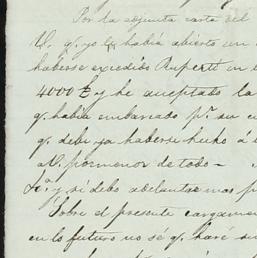 Por la adjunta carta del
V. q. yo le había abierto un
haberse excedido Ruperti en
4000 £ y he aceptado la
q. había embarcado pr. su
q. debe ya haberse hecho á
a V. pormenor de todo -
y si debo adelantar mas
Sobre el presente cargamen
en lo futuro no sé q. haré